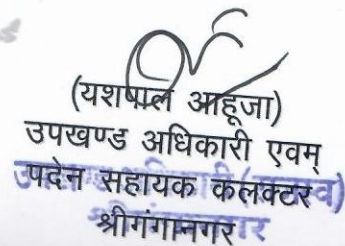 (यशपाल आहूजा)
उपखण्ड अधिकारी एवम्
पदेन सहायक कलक्टर
श्रीगंगानगर